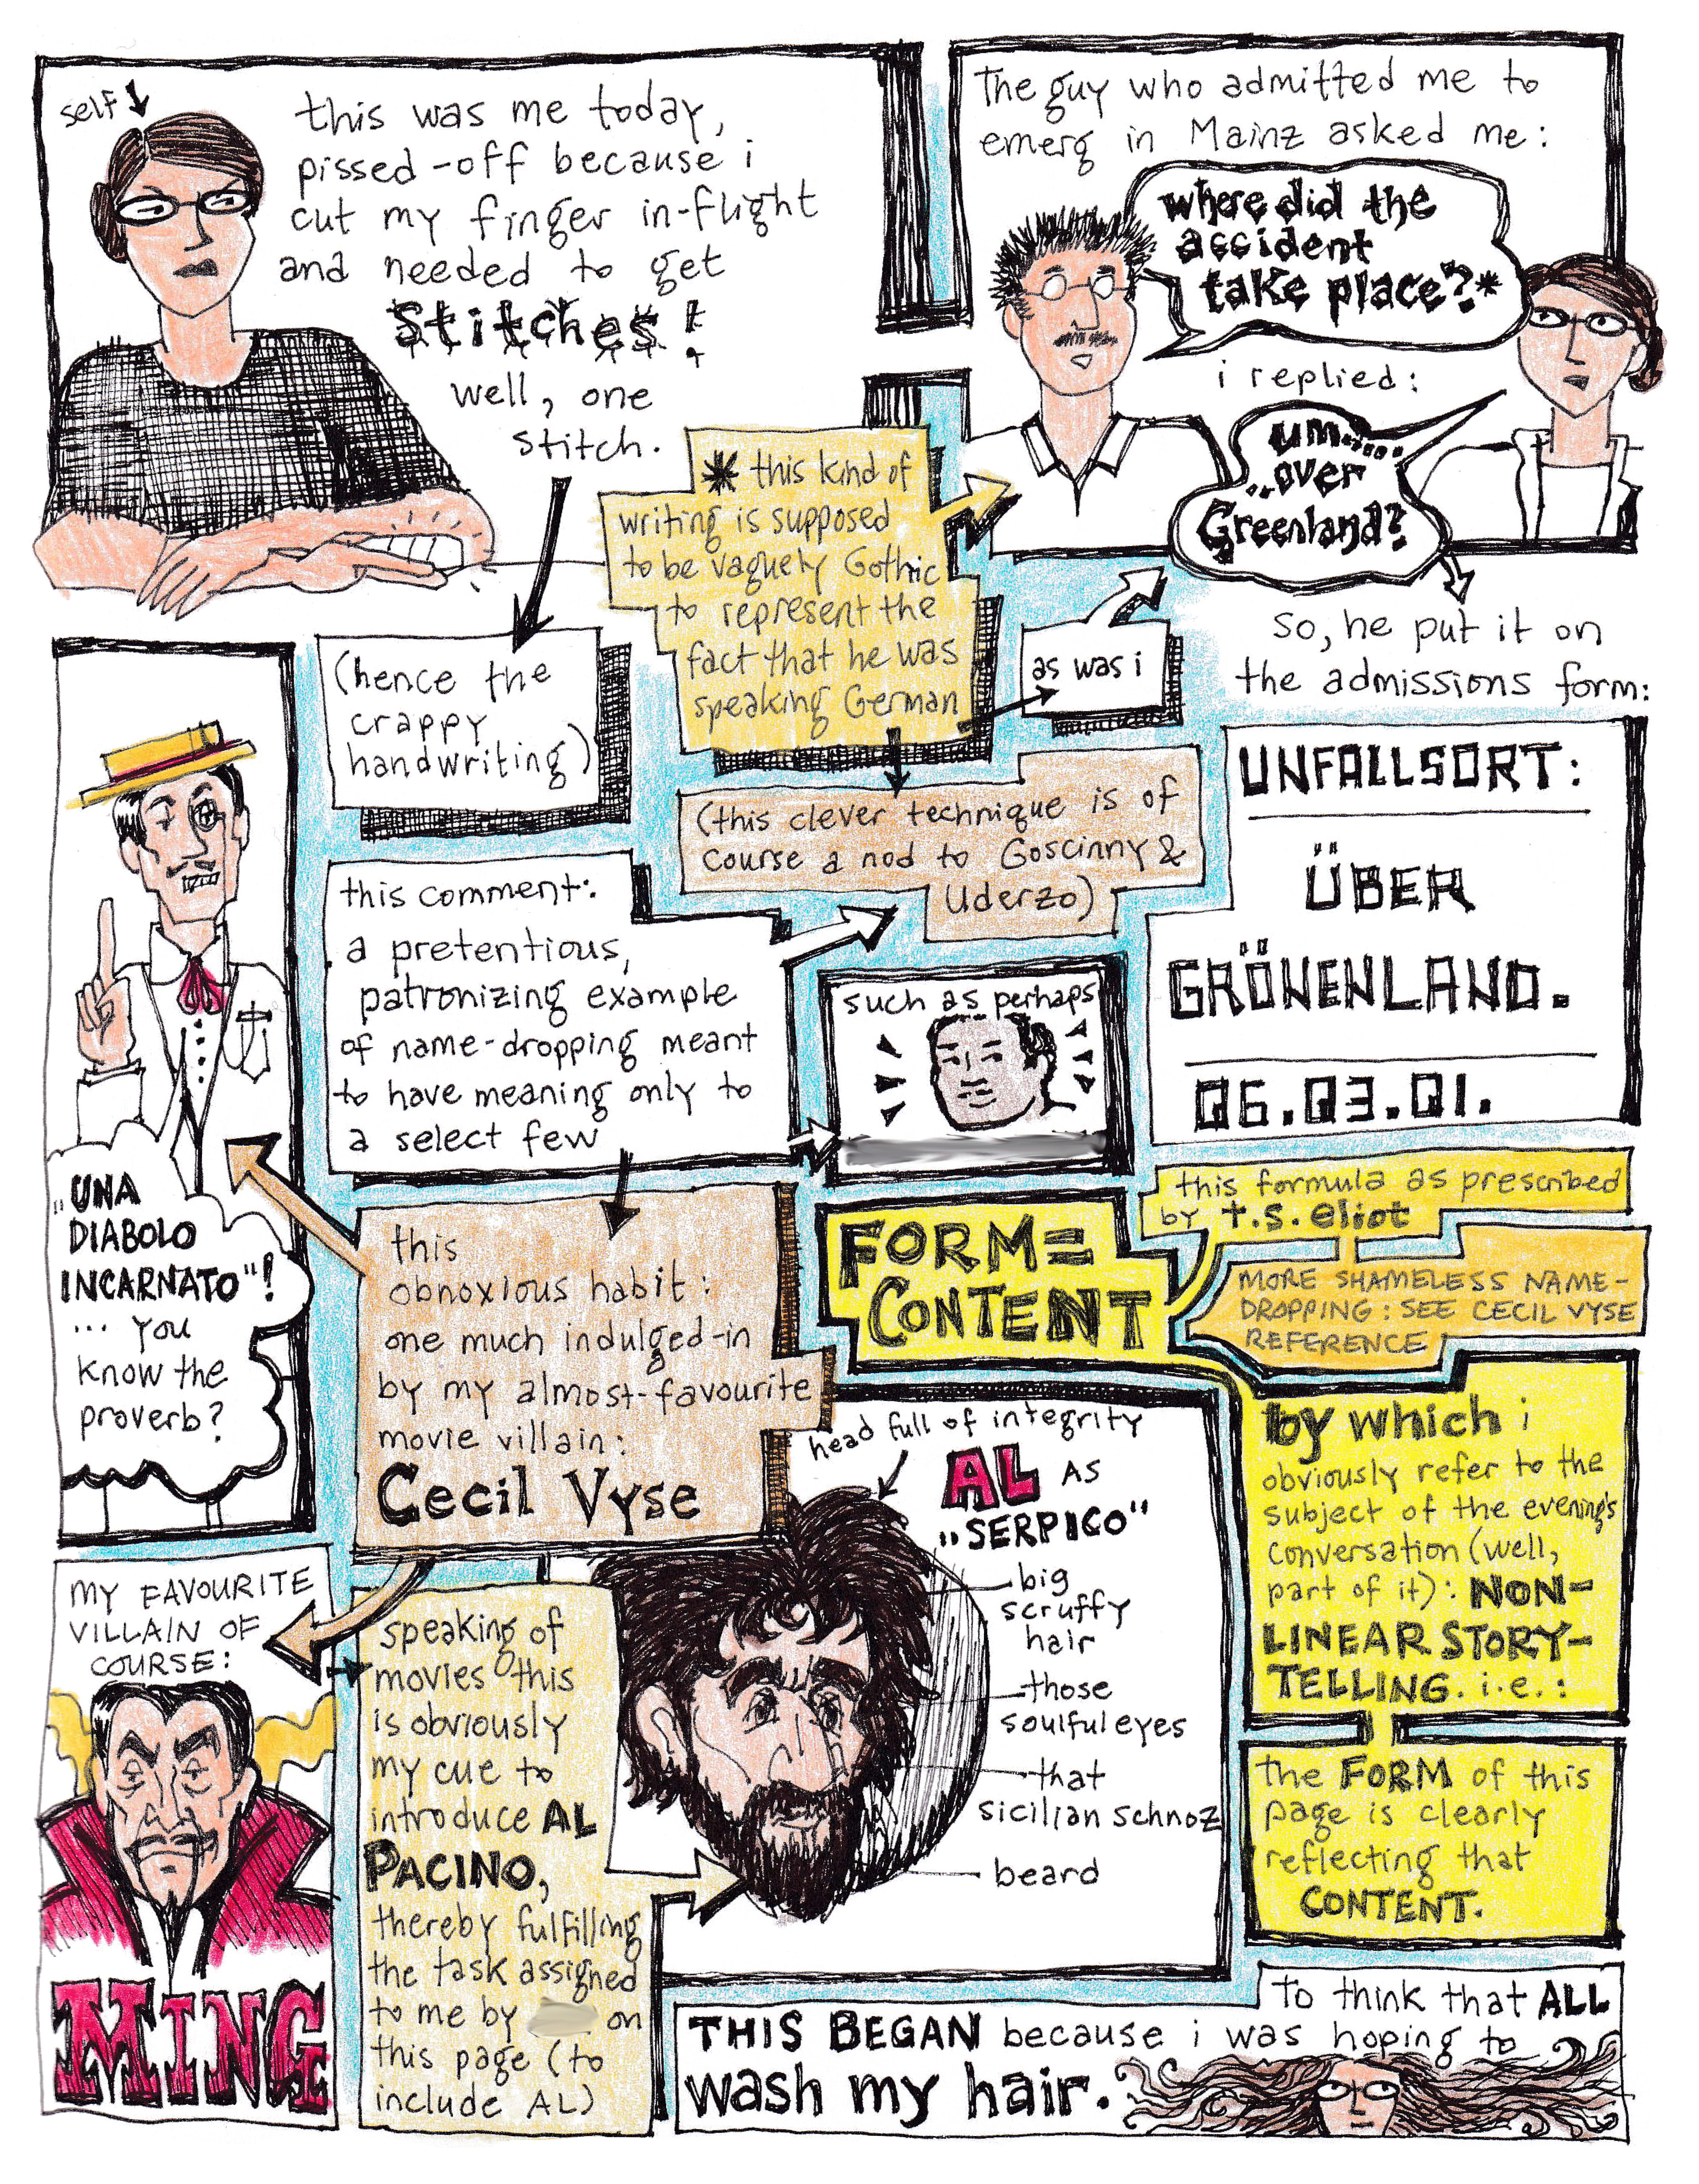 self
this was me today,
pissed-off because i
cut my finger in-flight
and needed to get
Stitches!
well, one
stitch.
The guy who admitted me to
emerg in Mainz asked me:
where did the
accident
take place?*
i replied:
um.....
..over
Greenland?
* this kind of
writing is supposed
to be vaguely Gothic
to represent the
fact that he was
speaking German
as was i
so, he put it on
the admissions form:
UNFALLSORT:
ÜBER
GRÖNENLAND.
06.03.01.
(hence the
crappy
handwriting)
(this clever technique is of
course a nod to Goscinny &
Uderzo)
this comment:
a pretentious,
patronizing example
of name-dropping meant
to have meaning only to
a select few
such as perhaps
„UNA
DIABOLO
INCARNATO"!
... you
know the
proverb?
this
obnoxious habit:
one much indulged-in
by my almost-favourite
movie villain:
Cecil Vyse
FORM=
CONTENT
this formula as prescribed
by t.s. eliot
MORE SHAMELESS NAME-
DROPPING: SEE CECIL VYSE
REFERENCE
by which i
obviously refer to the
subject of the evening's
conversation (well,
part of it): NON-
LINEAR STORY-
TELLING. i.e.:
the FORM of this
page is clearly
reflecting that
CONTENT.
MY FAVOURITE
VILLAIN OF
COURSE:
MING
speaking of
movies this
is obviously
my cue to
introduce AL
PACINO,
thereby fulfilling
the task assigned
to me by on
this page (to
include AL)
head full of integrity
AL AS
„SERPICO"
big
scruffy
hair
those
soulful eyes
that
sicilian schnoz
beard
to think that ALL
THIS BEGAN because i was hoping to
wash my hair.